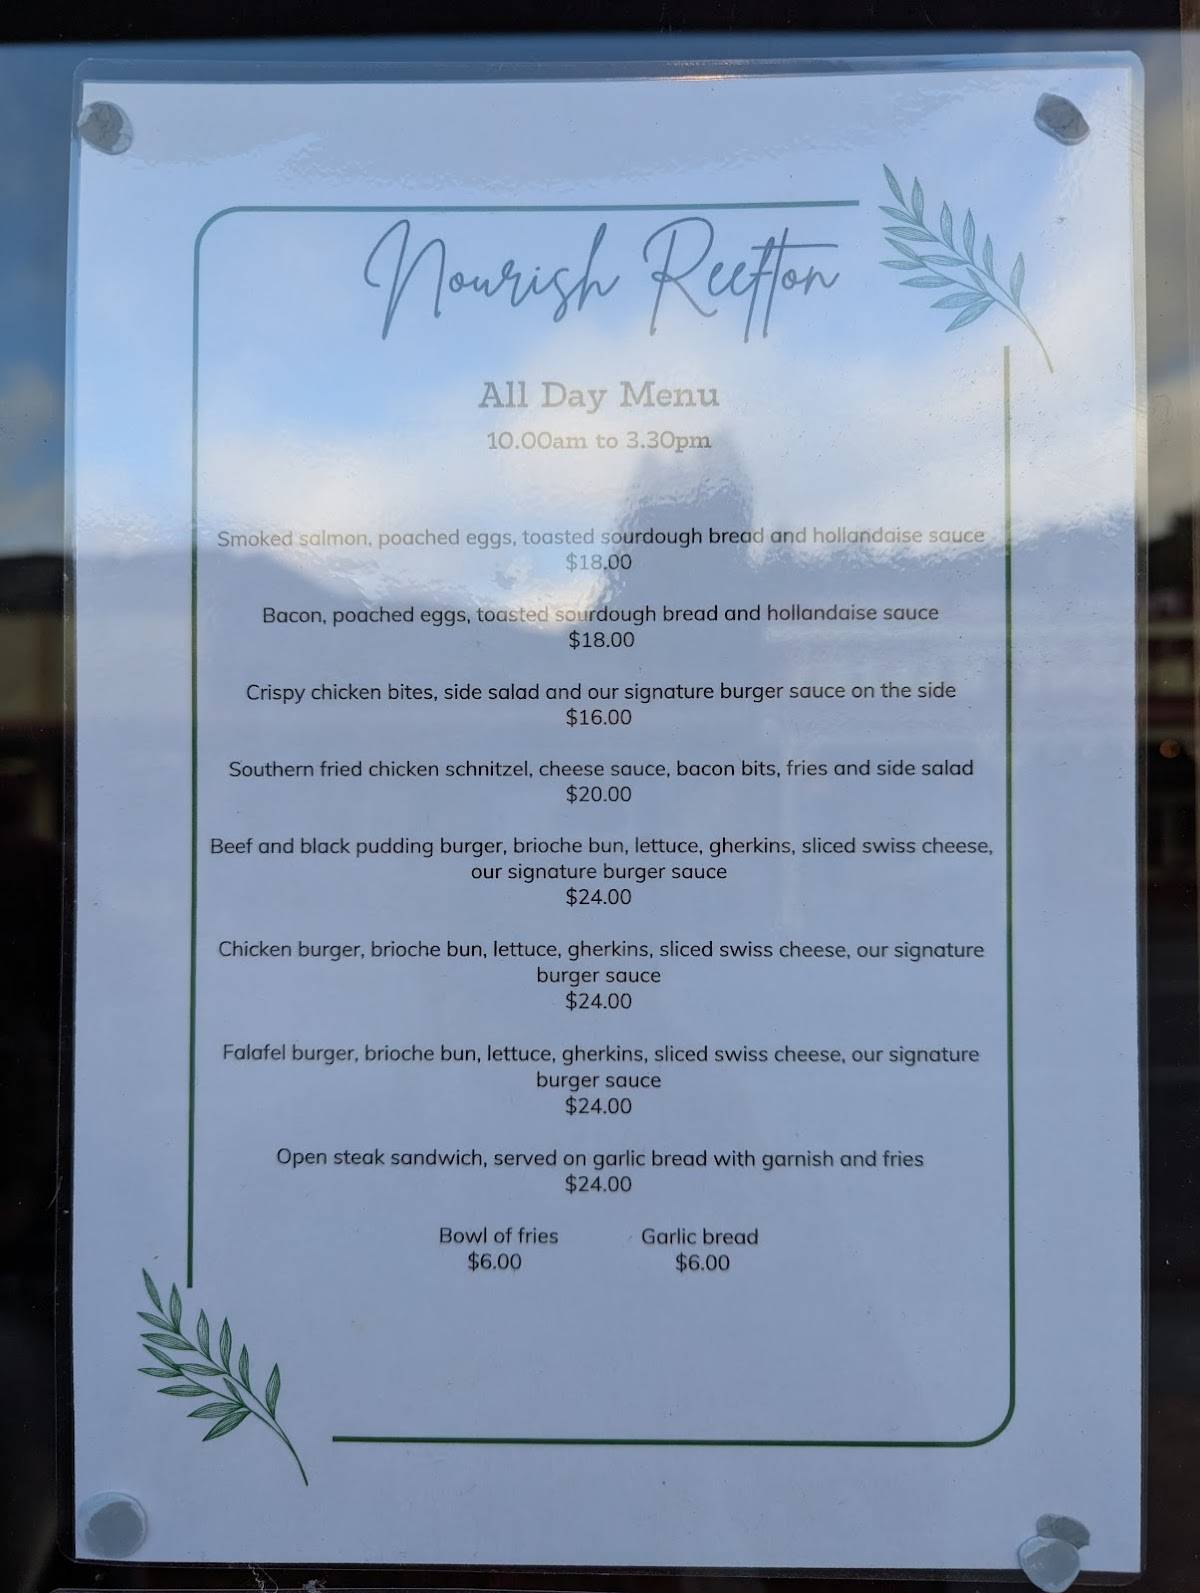 Nourish Reefton
All Day Menu
10.00am to 3.30pm
Smoked salmon, poached eggs, toasted sourdough bread and hollandaise sauce
$18.00
Bacon, poached eggs, toasted sourdough bread and hollandaise sauce
$18.00
Crispy chicken bites, side salad and our signature burger sauce on the side
$16.00
Southern fried chicken schnitzel, cheese sauce, bacon bits, fries and side salad
$20.00
Beef and black pudding burger, brioche bun, lettuce, gherkins, sliced swiss cheese,
our signature burger sauce
$24.00
Chicken burger, brioche bun, lettuce, gherkins, sliced swiss cheese, our signature
burger sauce
$24.00
Falafel burger, brioche bun, lettuce, gherkins, sliced swiss cheese, our signature
burger sauce
$24.00
Open steak sandwich, served on garlic bread with garnish and fries
$24.00
Bowl of fries Garlic bread
$6.00 $6.00